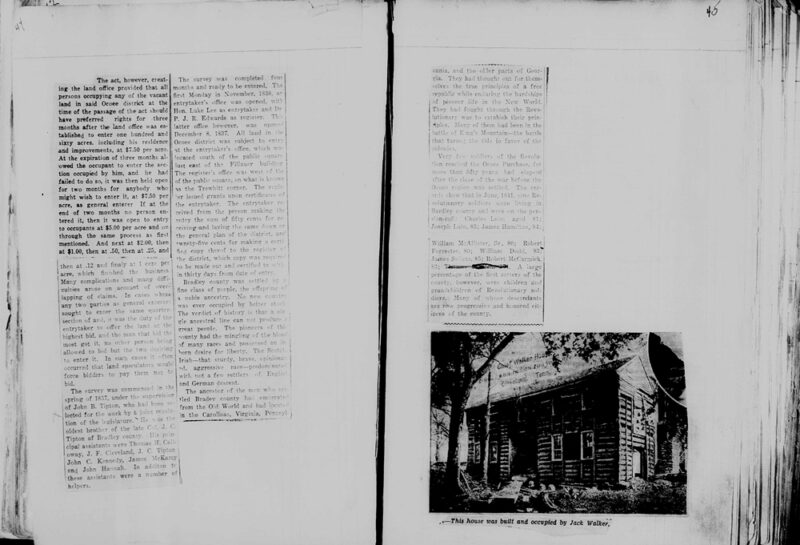 45
The act, however, creat-
ing the land office provided that all
persons occupying any of the vacant
land in said Ocoee district at the
time of the passage of the act should
have preferred rights for three
months after the land office was es-
tablished to enter one hundred and
sixty acres, including his residence
and improvements, at $7.50 per acre.
At the expiration of three months al-
owed the occupant to enter the sec-
tion occupied by him, and he had
failed to do so, it was then held open
for two months for anybody who
might wish to enter it, at $7.50 per
acre, as general enterer. If at the
end of two months no person en-
tered it, then it was open to entry
to occupants at $5.00 per acre and on
through the same process as first
mentioned. And next at $2.00, then
at $1.00, then at .50, then at .25, and
then at .12 and finaly at 1 cent per
acre, which finished the business.
Many complications and many diffi-
culties arose on account of over-
lapping of claims. In cases where
any two parties as general enterers
sought to enter the same quarter
section of land, it was the duty of the
entrytaker to offer the land to the
highest bid, and the man that bid the
most got it, no other person being
allowed to bid but the two
to enter it. In such cases it often
occurred that land speculators would
force bidders to pay them not to
bid.
The survey was commenced in the
spring of 1837, under the supervision
of John B. Tipton, who had been se-
lected for the work by a joint resolu-
tion of the legislature. He was the
oldest brother of the late Col. J. C.
Tipton of Bradley county. His prin-
cipal assistants were Thomas H. Call-
oway, J. F. Cleveland, J. C. Tipton
John C. Kennedy, James McKamy
and John Hannah. In addition to
these assistants were a number of
helpers.
The survey was completed four
months and ready to be entered. The
first Monday in November, 1838, the
entrytaker's office was opened, with
Hon. Luke Lee as entrytaker and Dr.
P. J. R. Edwards as register. The
latter office however, was opened
December 8, 1837. All land in the
Ocoee district was subject to entry
at the entrytaker's office, which was
located south of the public square
just east of the Fillauer building
The register's office was west of the
of the public square, on what is known
as the Trewhitt corner. The regis-
ter issued grants upon certificates of
the entrytaker. The entrytaker re-
ceived from the person making the
entry the sum of fifty cents for re-
ceiving and laying the same down on
the general plan of the district, and
twenty-five cents for making a certi-
fied copy thereof to the register of
the district, which copy was required
to be made out and certified to with-
in thirty days from date of entry.
Bradley county was settled by a
fine class of people, the offspring of
a noble ancestry. No new country
was ever occupied by better stock
The verdict of history is that a sin-
gle ancestral line can not produce a
great people. The pioneers of this
county had the mingling of the blood
of many races and possessed an in-
born desire for liberty. The Scotch
Irish—that sturdy, brave,
ed, aggressive race—predominated
with not a few settlers of English
and German descent.
The ancestor of the men who set-
tled Bradley county had emigrated
from the Old World and had located
in the Carolinas, Virginia, Pennsyl
vania, and the older parts of Geor-
gia. They had thought out for them-
selves the true principles of a free
republic while enduring the hardships
of pioneer life in the New World.
They had fought through the Revo-
lutionary war to establish their prin-
ciples. Many of them had been in the
battle of King's Mountain—the battle
that turned the tide in favor of the
colonies.
Very few soldiers of the Revolu-
tion reached the Ocoee Purchase, for
more than fifty years had elapsed
after the close of the war before the
Ocoee region was settled. The rec-
ords show that in June, 1841, nine Re-
volutionary soldiers were living in
Bradley county and were on the pen-
sion-roll: Charles Lain, aged 87;
Joseph Lain, 85; James Hamilton, 84;
William McAllister, Sr., 80; Robert
Forrester, 80; William Dodd, 87;
James Sellers, 85; Robert McCormick,
83; A large
percentage of the first settlers of the
county, however, were children and
grandchildren of Revolutionary sol-
diers. Many of whose descendants
are now progressive and honored cit-
izens of the county.
.—This house was built and occupied by Jack Walker.